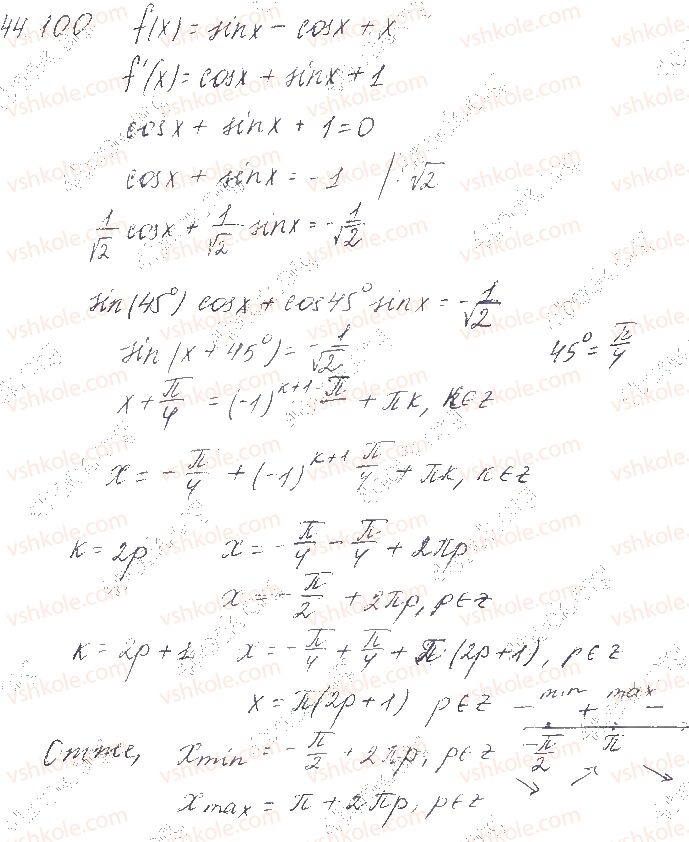 44 100 f(x) = sinx - cosx + x
f'(x) = cosx + sinx + 1
cosx + sinx + 1 = 0
cosx + sinx = -1 | : √2
1/√2 cosx + 1/√2 sinx = -1/√2
sin(45°) cosx + cos45° sinx = -1/√2
sin(x + 45°) = -1/√2 45° = π/4
x + π/4 = (-1)^(k+1) · π/4 + πk, k∈z
x = -π/4 + (-1)^(k+1) π/4 + πk, k∈z
k = 2p x = -π/4 - π/4 + 2πp
x = -π/2 + 2πp, p∈z
k = 2p + 1 x = -π/4 + π/4 + π(2p+1), p∈z
x = π(2p+1) p∈z - min + max -
Отже, xmin = -π/2 + 2πp, p∈z -π/2 π
xmax = π + 2πp, p∈z ↘ ↗ ↘
vshkole.com